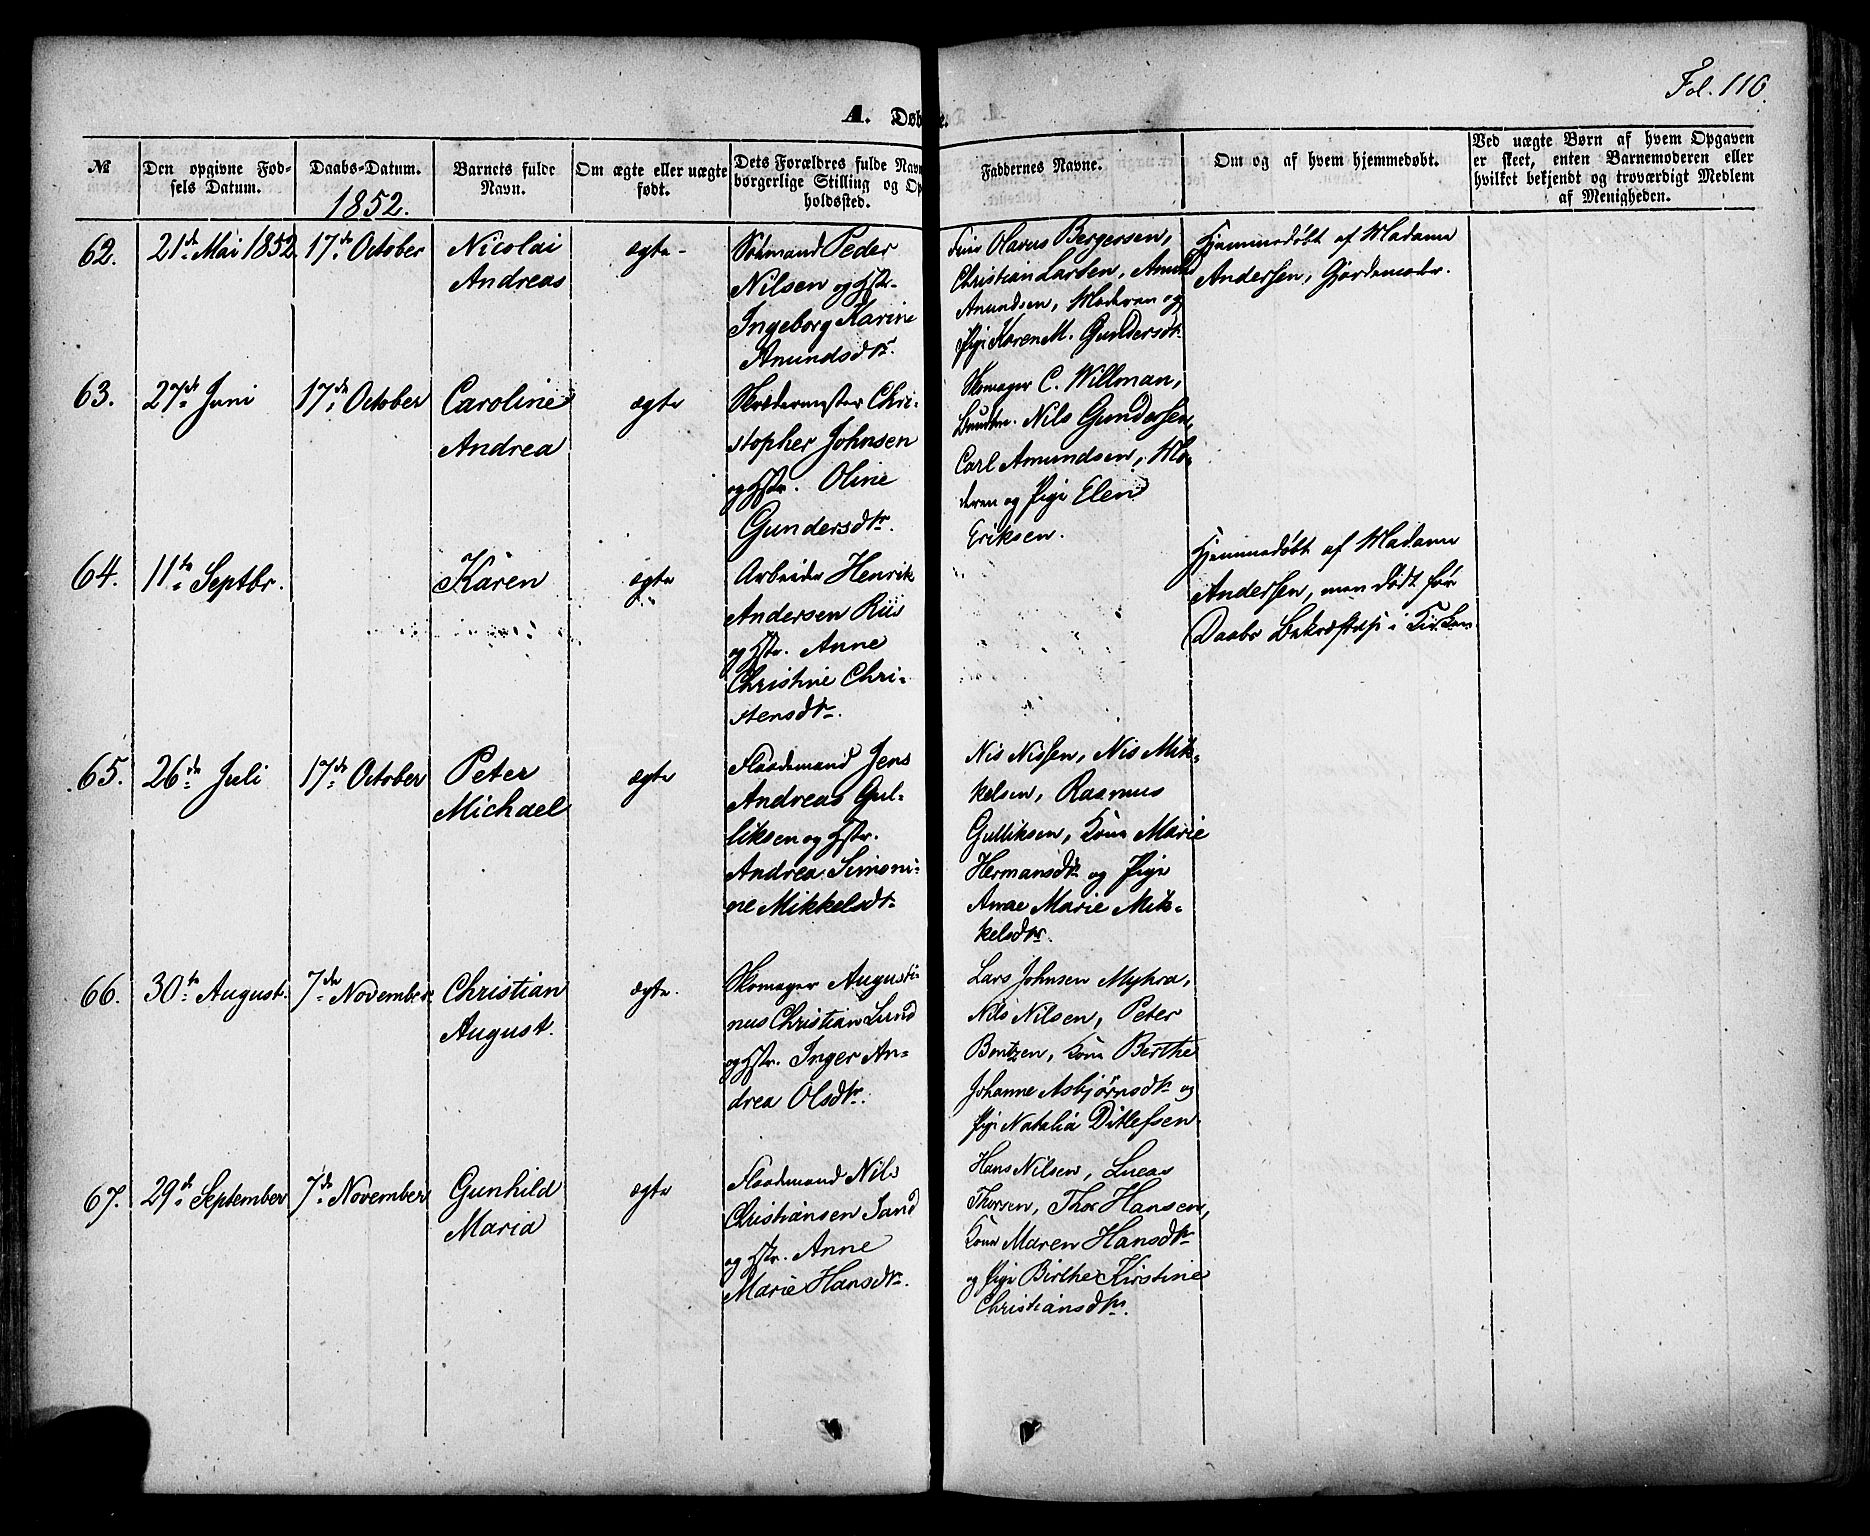 Fol. 116.
A. Døbte.
№
Den opgivne Fød-
sels Datum.
Daabs-Datum.
1852.
Barnets fulde
Navn.
Om ægte eller uægte
født.
Dets Forældres fulde Navn
borgerlige Stilling og Op
holdssted.
Faddernes Navne.
Om og af hvem hjemmedøbt.
Ved uægte Børn af hvem Opgaven
er skeet, enten Barnemoderen eller
hvilket bekjendt og troværdigt Medlem
af Menigheden.
62.
21de Mai 1852
17de October
Nicolai
Andreas
ægte
Sømand Peder
Nilsen og Hstr.
Ingeborg Karine
Amundsdtr.
Olavus Bergersen,
Christian Larsen, Amund
Amundsen, Moderen og
Pige Karen M. Gundersdtr.
Hjemmedøbt af Madame
Andersen, Gjordemoder.
63.
27de Juni
17de October
Caroline
Andrea
ægte
Skrædermester Chri-
stopher Johnsen
og Hstr. Oline
Gundersdtr.
Skomager C. Willman,
Nils Gundersen,
Carl Amundsen, Mo-
deren og Pige Elen
Eriksen.
64.
11te Septbr.
Karen
ægte
Arbeider Henrik
Andersen Riis
og Hstr. Anne
Christine Chri-
stensdtr.
Hjemmedøbt af Madame
Andersen, men død før
Daabs Bekræftelse i Kirken
65.
26de Juli
17de October
Peter
Michael
ægte
Flaademand Jens
Andreas Gul-
liksen og Hstr.
Andrea Simoni-
ne Mikkelsdtr.
Nis Nissen, Nis Mik-
kelsen, Rasmus
Gulliksen, Kone Marie
Hermansdtr og Pige
Anne Marie Mik-
kelsdtr.
66.
30te August.
7de November
Christian
August.
ægte.
Skomager Augusti-
nus Christian Lund
og Hstr. Inger An-
drea Olsdtr.
Lars Johnsen Myhra,
Nils Nilsen, Peter
Bentzen, Kone Berthe
Johanne Asbjørnsdtr og
Pige Natalia Ditlefsen.
67.
29de September
7de November
Gunhild
Maria
ægte
Flaademand Nils
Christiansen Sand
og Hstr. Anne
Marie Hansdtr.
Hans Nilsen, Lucas
Thorsen, Thor Hansen,
Kone Maren Hansdtr
og Pige Birthe Kirstine
Christiansdtr.